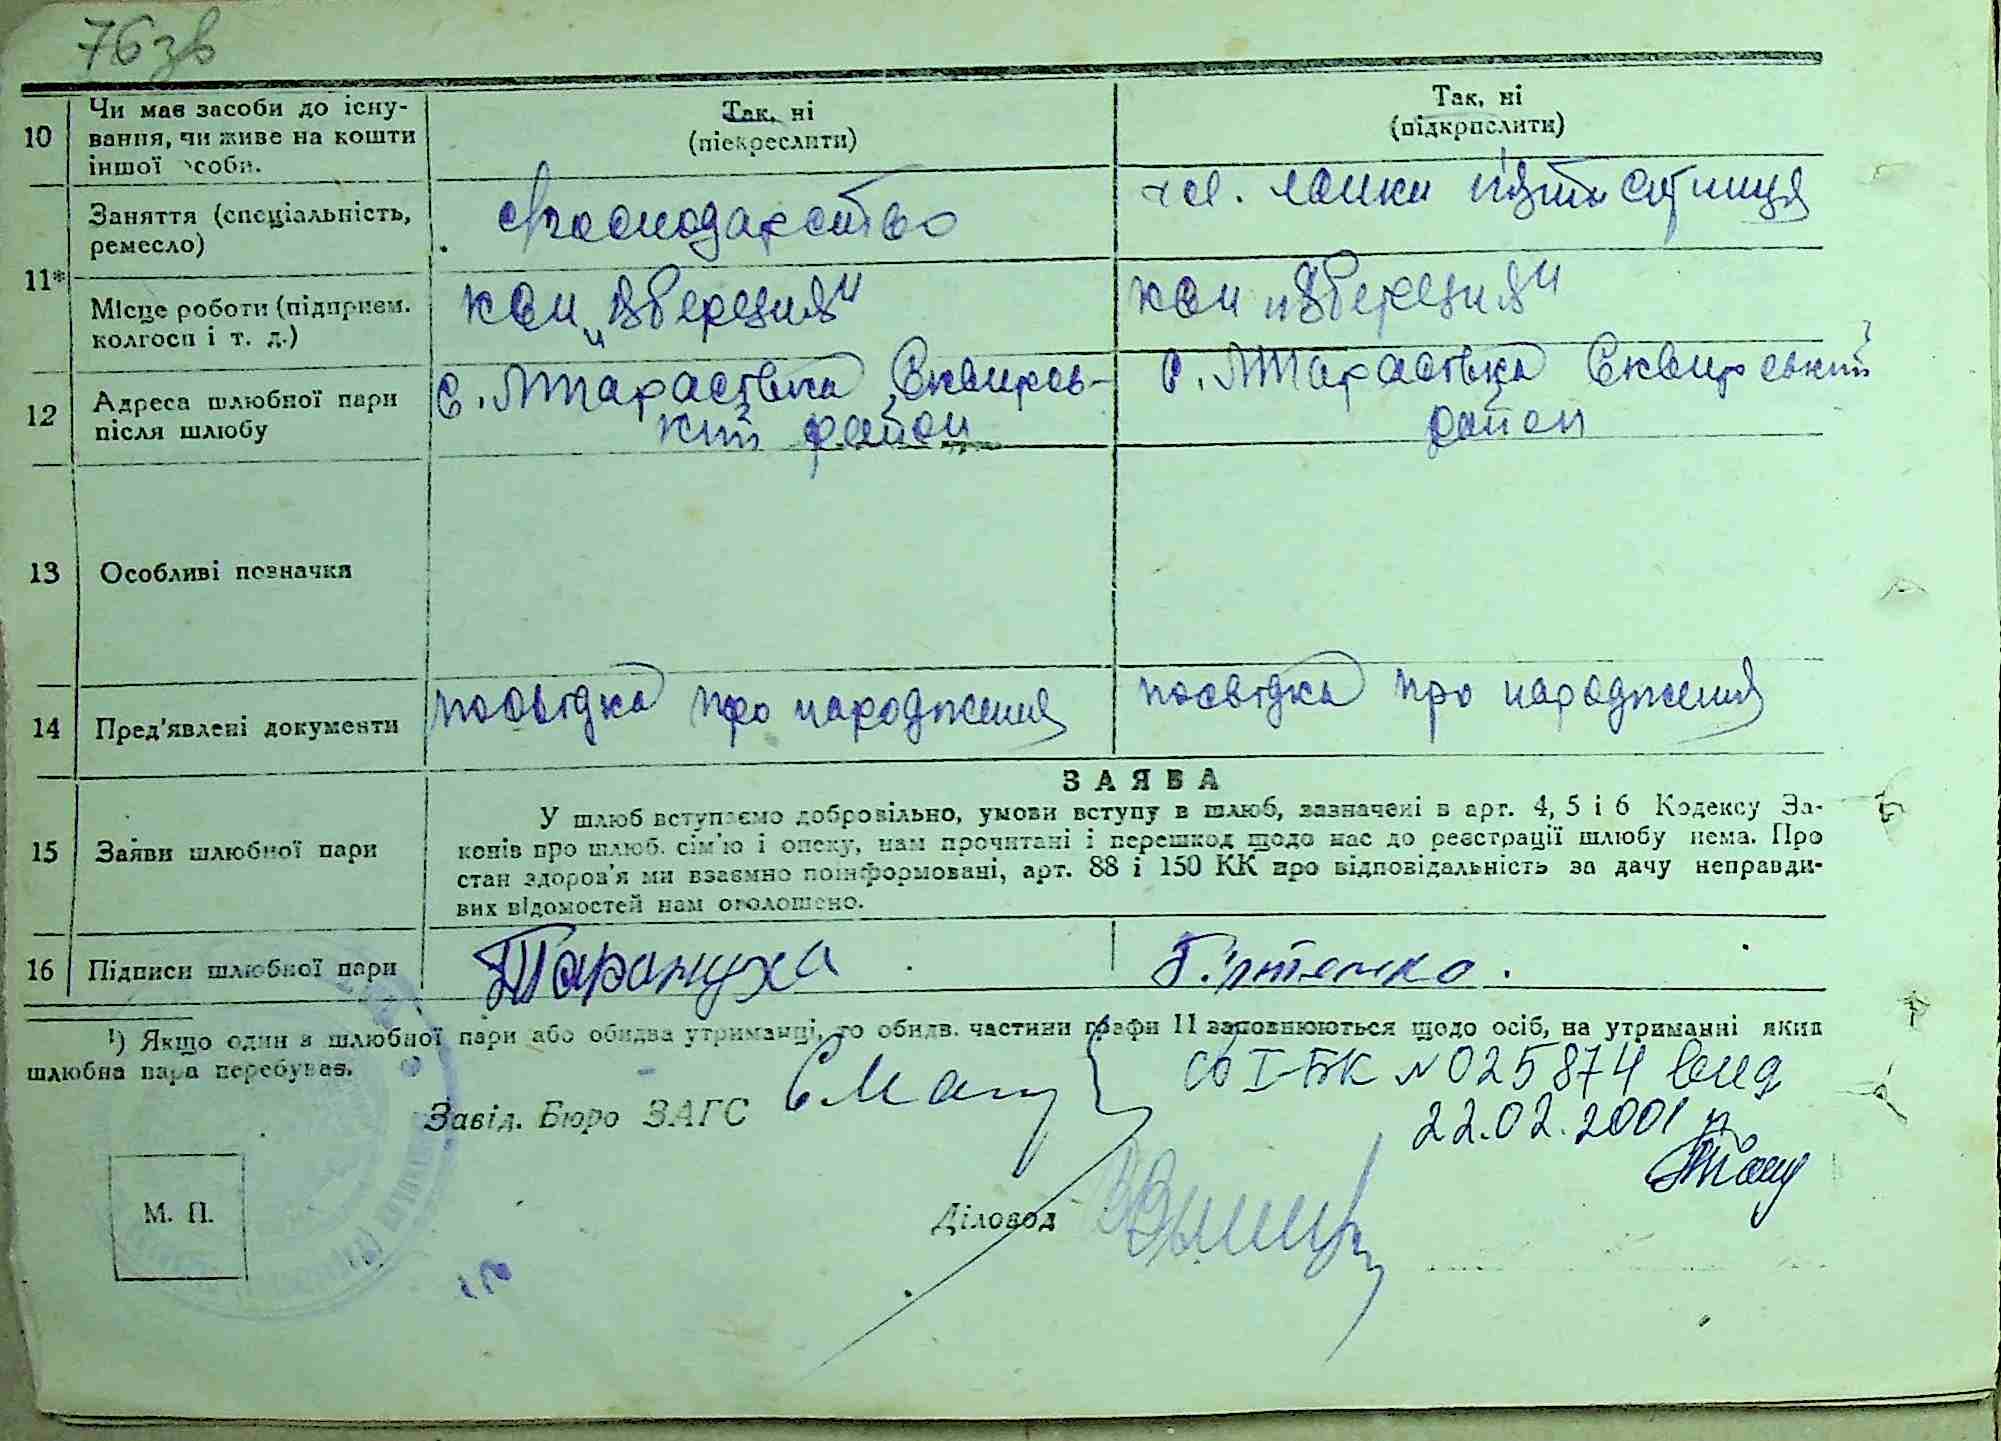 76зв
10 Чи має засоби до існу-
вання, чи живе на кошти
іншої особи.
Так, ні
(піекреслити)
Так, ні
(підкрпслити)
Заняття (спеціальність,
ремесло)
господарство
чл. ланки п'ятисотниця
11*
Місце роботи (підприєм.
колгосп і т. д.)
"8 березня"
"8 березня"
12 Адреса шлюбної пари
після шлюбу
с. Тарасівка, Сквирсь-
кий район
с. Тарасівка Сквирський
район
13 Особливі позначки
14 Пред'явлені документи
посвідка про народження
посвідка про народження
15 Заяви шлюбної пари
ЗАЯВА
У шлюб вступаємо добровільно, умови вступу в шлюб, зазначені в арт. 4, 5 і 6 Кодексу За-
конів про шлюб, сім'ю і опеку, нам прочитані і перешкод щодо нас до реєстрації шлюбу нема. Про
стан здоров'я ми взаємно поінформовані, арт. 88 і 150 КК про відповідальність за дачу неправди-
вих відомостей нам оголошено.
16 Підписи шлюбної пари
Тарануха
¹) Якщо один з шлюбної пари або обидва утриманці, то обидв. частини графи 11 заповнюються щодо осіб, на утриманні яких
шлюбна пара перебуває.
Завід. Бюро ЗАГС
св І-БК № 025874 вид
22.02.2001 р
М. П.
Діловод